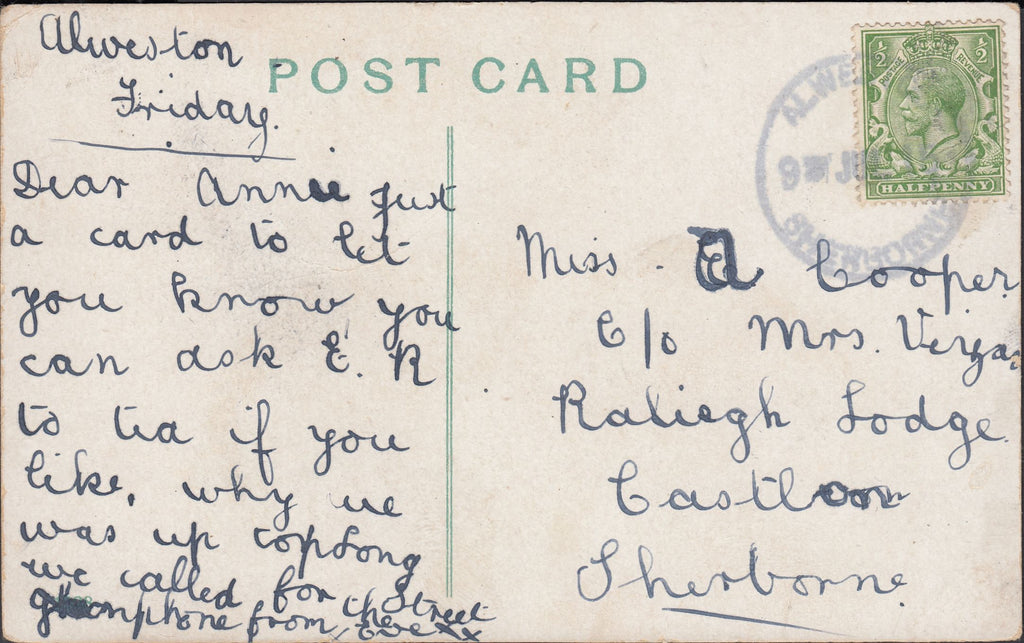 Alweston
Friday.
POST CARD
Dear Annie Just
a card to let
you know you
can ask E. R
to tea if you
like, why we
was up
we called for
phone from the Street
xx Eve xx
Miss. A Cooper
C/o Mrs. Virgin
Raliegh Lodge
Castleton
Sherborne.
½ ½
POSTAGE REVENUE
HALFPENNY
ALWE
9 JU
SHERBORNE